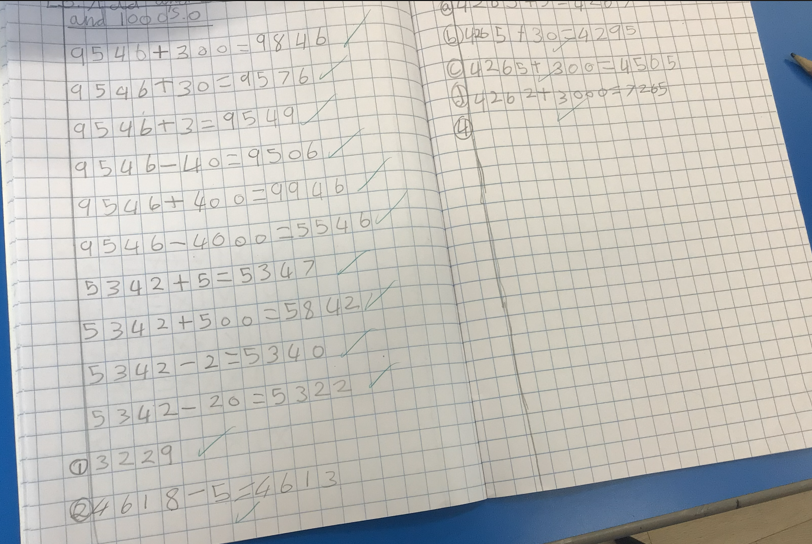 and 1000s.
9546+300=9846
9546+30=9576
9546+3=9549
9546-40=9506
9546+400=9946
9546-4000=5546
5342+5=5347
5342+500=5842
5342-2=5340
5342-20=5322
① 3229
② 4618-5=4613
b) 4265+30=4295
c) 4265+300=4565
d) 4262+3000=7265
④